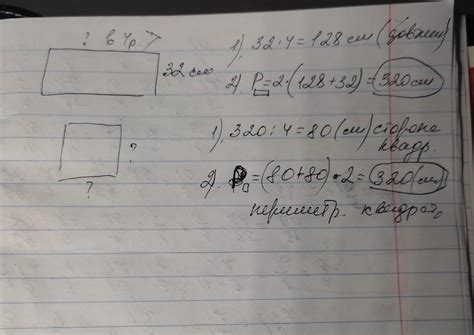 ? в 4р. >
32 см
1). 32:4=128 см (довжин)
2). P=2·(128+32)=320см
?
?
1). 320:4=80(см) сторона
квадр.
2). P□=(80+80)·2=320(см)
периметр. квадрата